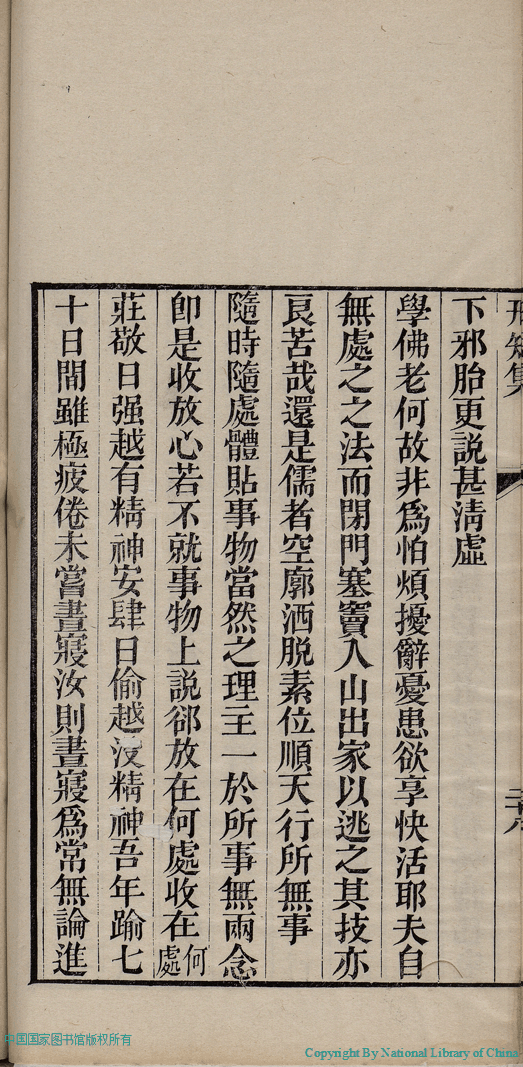 下邪胎更説甚清虛
學佛老何故非爲怕煩擾辭憂患欲享快活耶夫自
無處之之法而閉門塞竇入山出家以逃之其技亦
良苦哉還是儒者空廓洒脱素位順天行所無事
隨時隨處體貼事物當然之理主一於所事無兩念
卽是收放心若不就事物上説郤放在何處收在何處
莊敬日强越有精神安肆日偷越没精神吾年踰七
十日閒雖極疲倦未嘗晝寢汝則晝寢爲常無論進
中国国家图书馆版权所有
Copyright By National Library of China